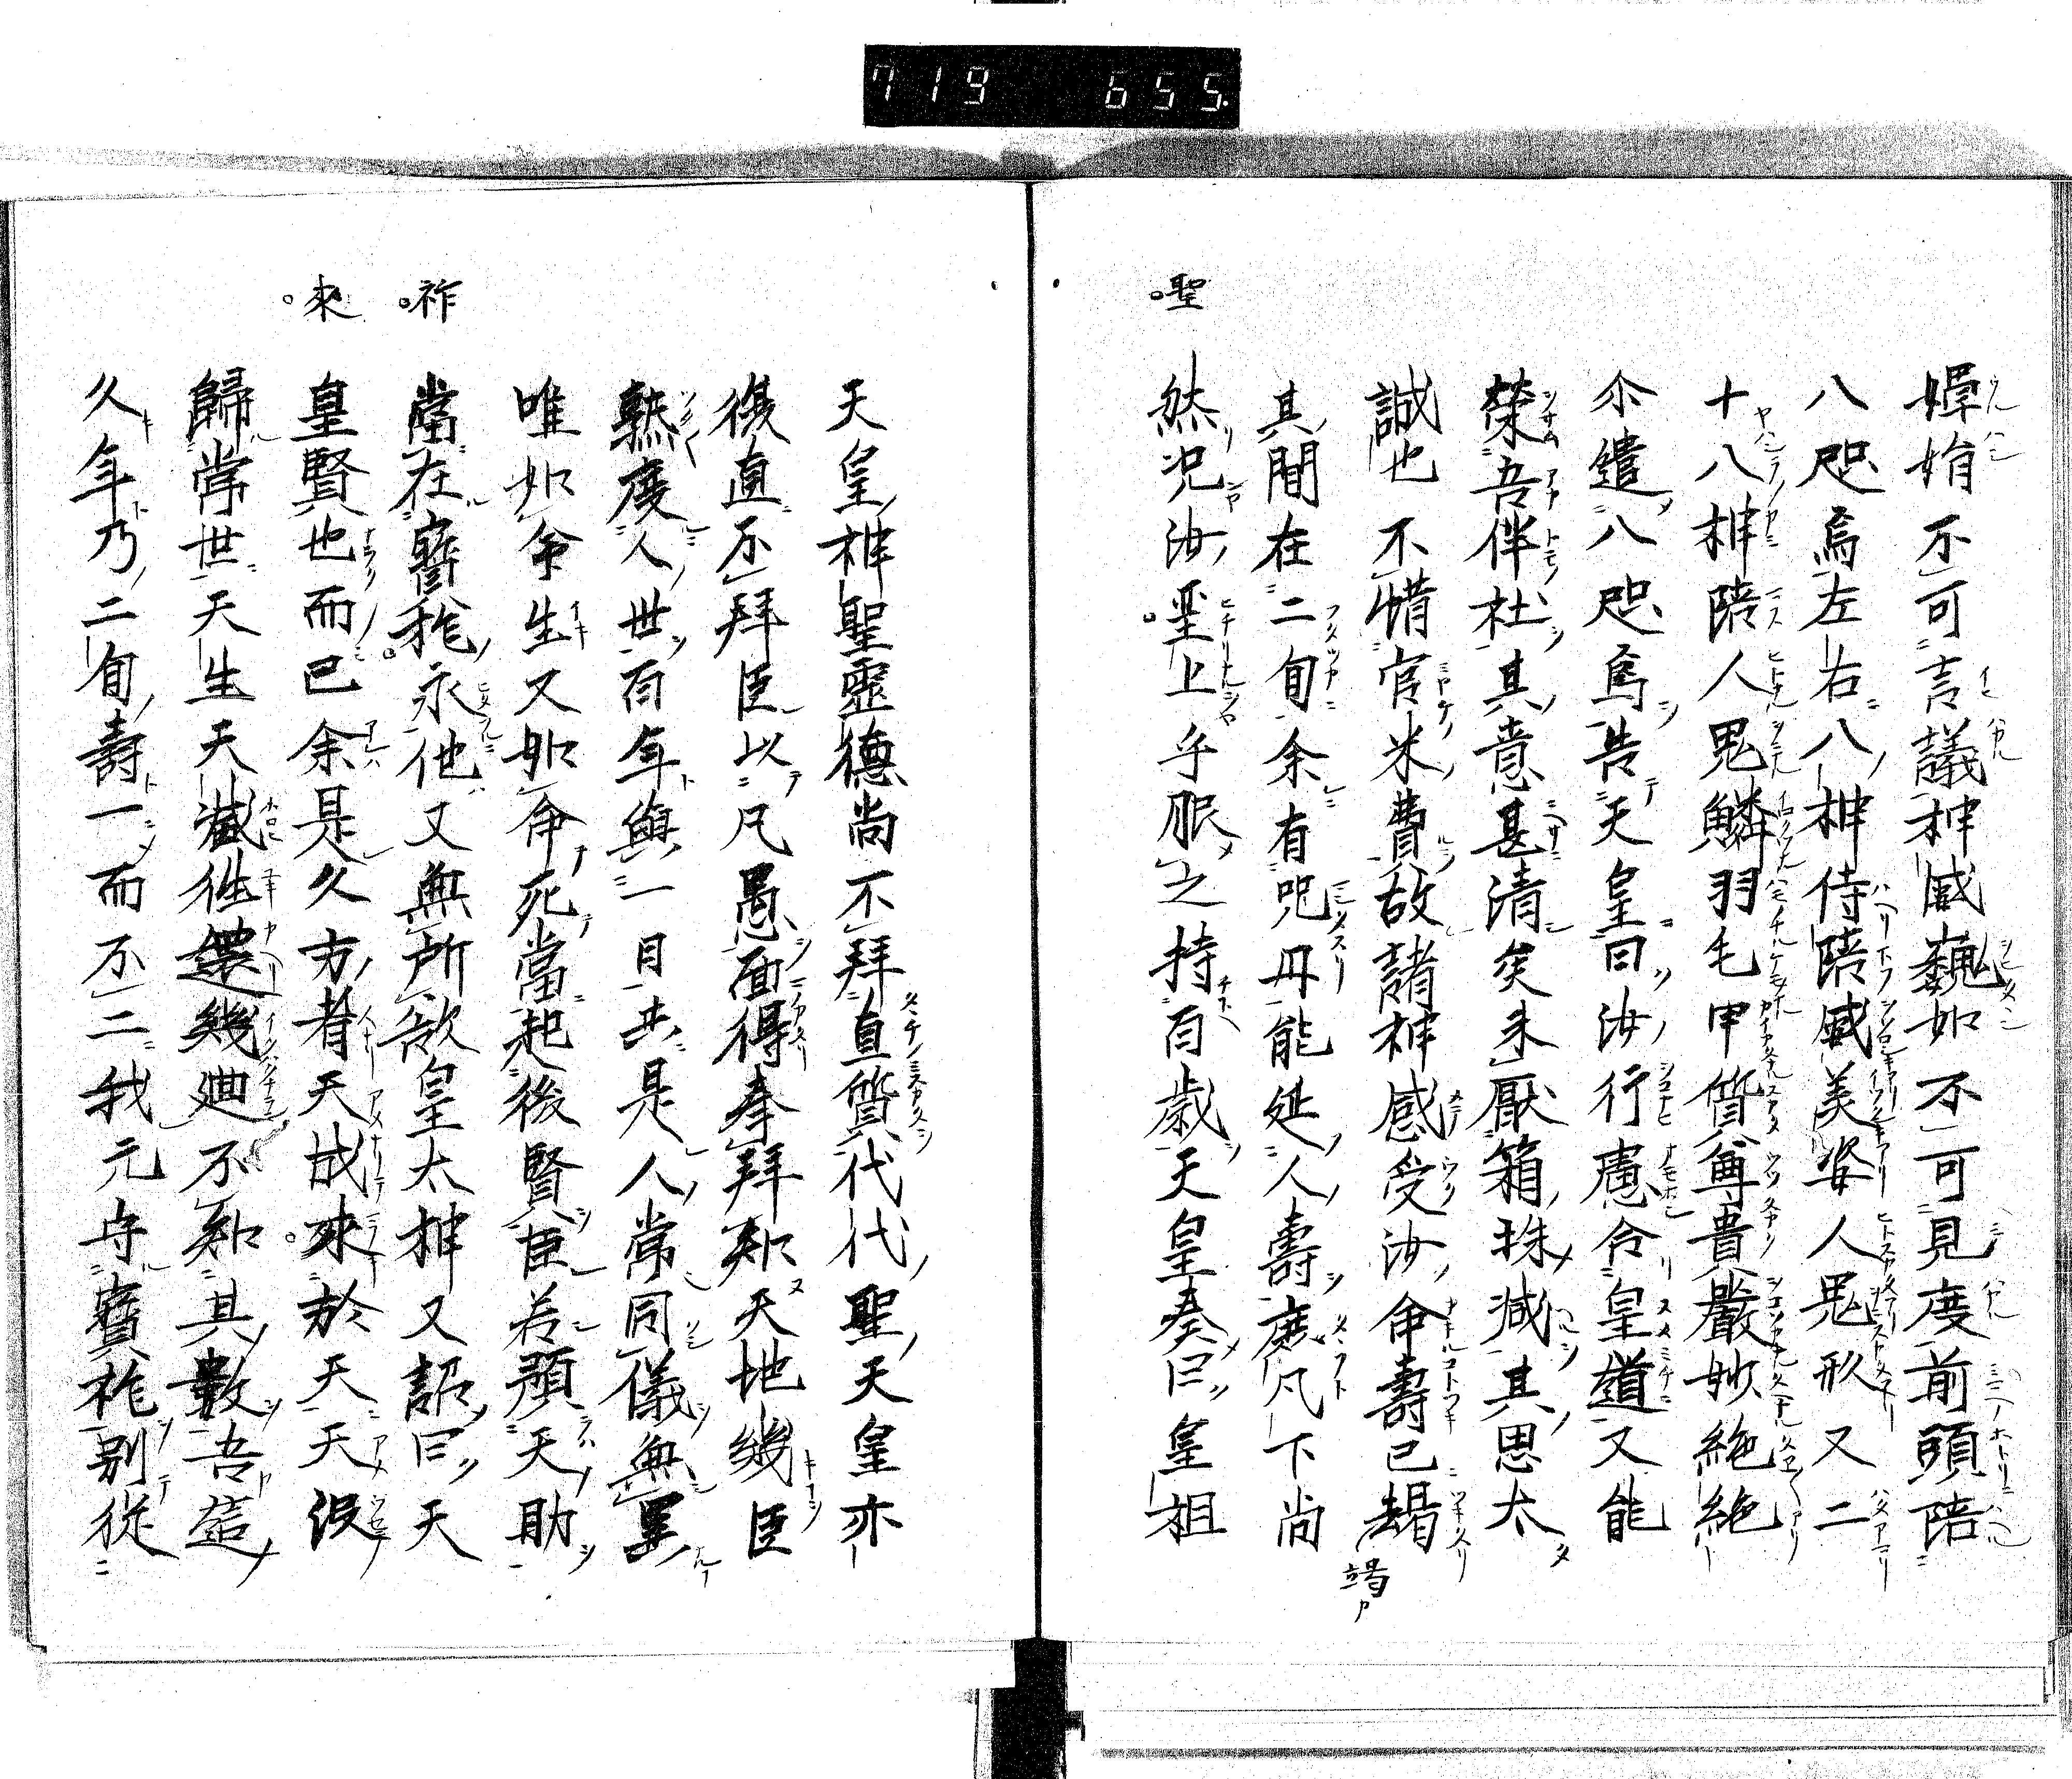 719 655.
嬋娟不可言議神威巍如不可見度前頭陪
八咫烏左右八神侍陪威美姿人鬼形又二
十八神陪人鬼鱗羽毛甲質尊貴嚴妙絶絶
尒遣八咫烏告天皇曰汝行慮合皇道又能
榮吾伴社其意甚清矣未厭箱珠減其思太
誠也不惜官米費故諸神感受汝命壽已
竭カ
其間在二旬余有咒丹能延人壽度凡下尚
聖
然況汝上乎服之持百歲天皇奏曰皇祖
天皇神聖靈德尚不拜直質代代聖天皇亦
復直不拜臣以凡愚面得奉拜知天地幾臣
熟度人世百年與一日共是人常同儀無異
唯如命生又如命死當起後賢臣若預天助
祚
當在寶祚永他又無所欲皇太神又詔曰天
來
皇賢也而已余是久方者天成來於天天沒
歸常世天生天滅往還幾廻不知其數吾
久年乃二旬壽一而不二我元守寶祚別從